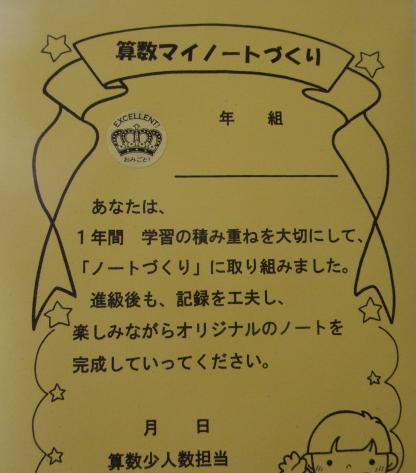 算数マイノートづくり
EXCELLENT!
おみごと!
年 組
あなたは、
1年間 学習の積み重ねを大切にして、
「ノートづくり」に取り組みました。
進級後も、記録を工夫し、
楽しみながらオリジナルのノートを
完成していってください。
月 日
算数少人数担当